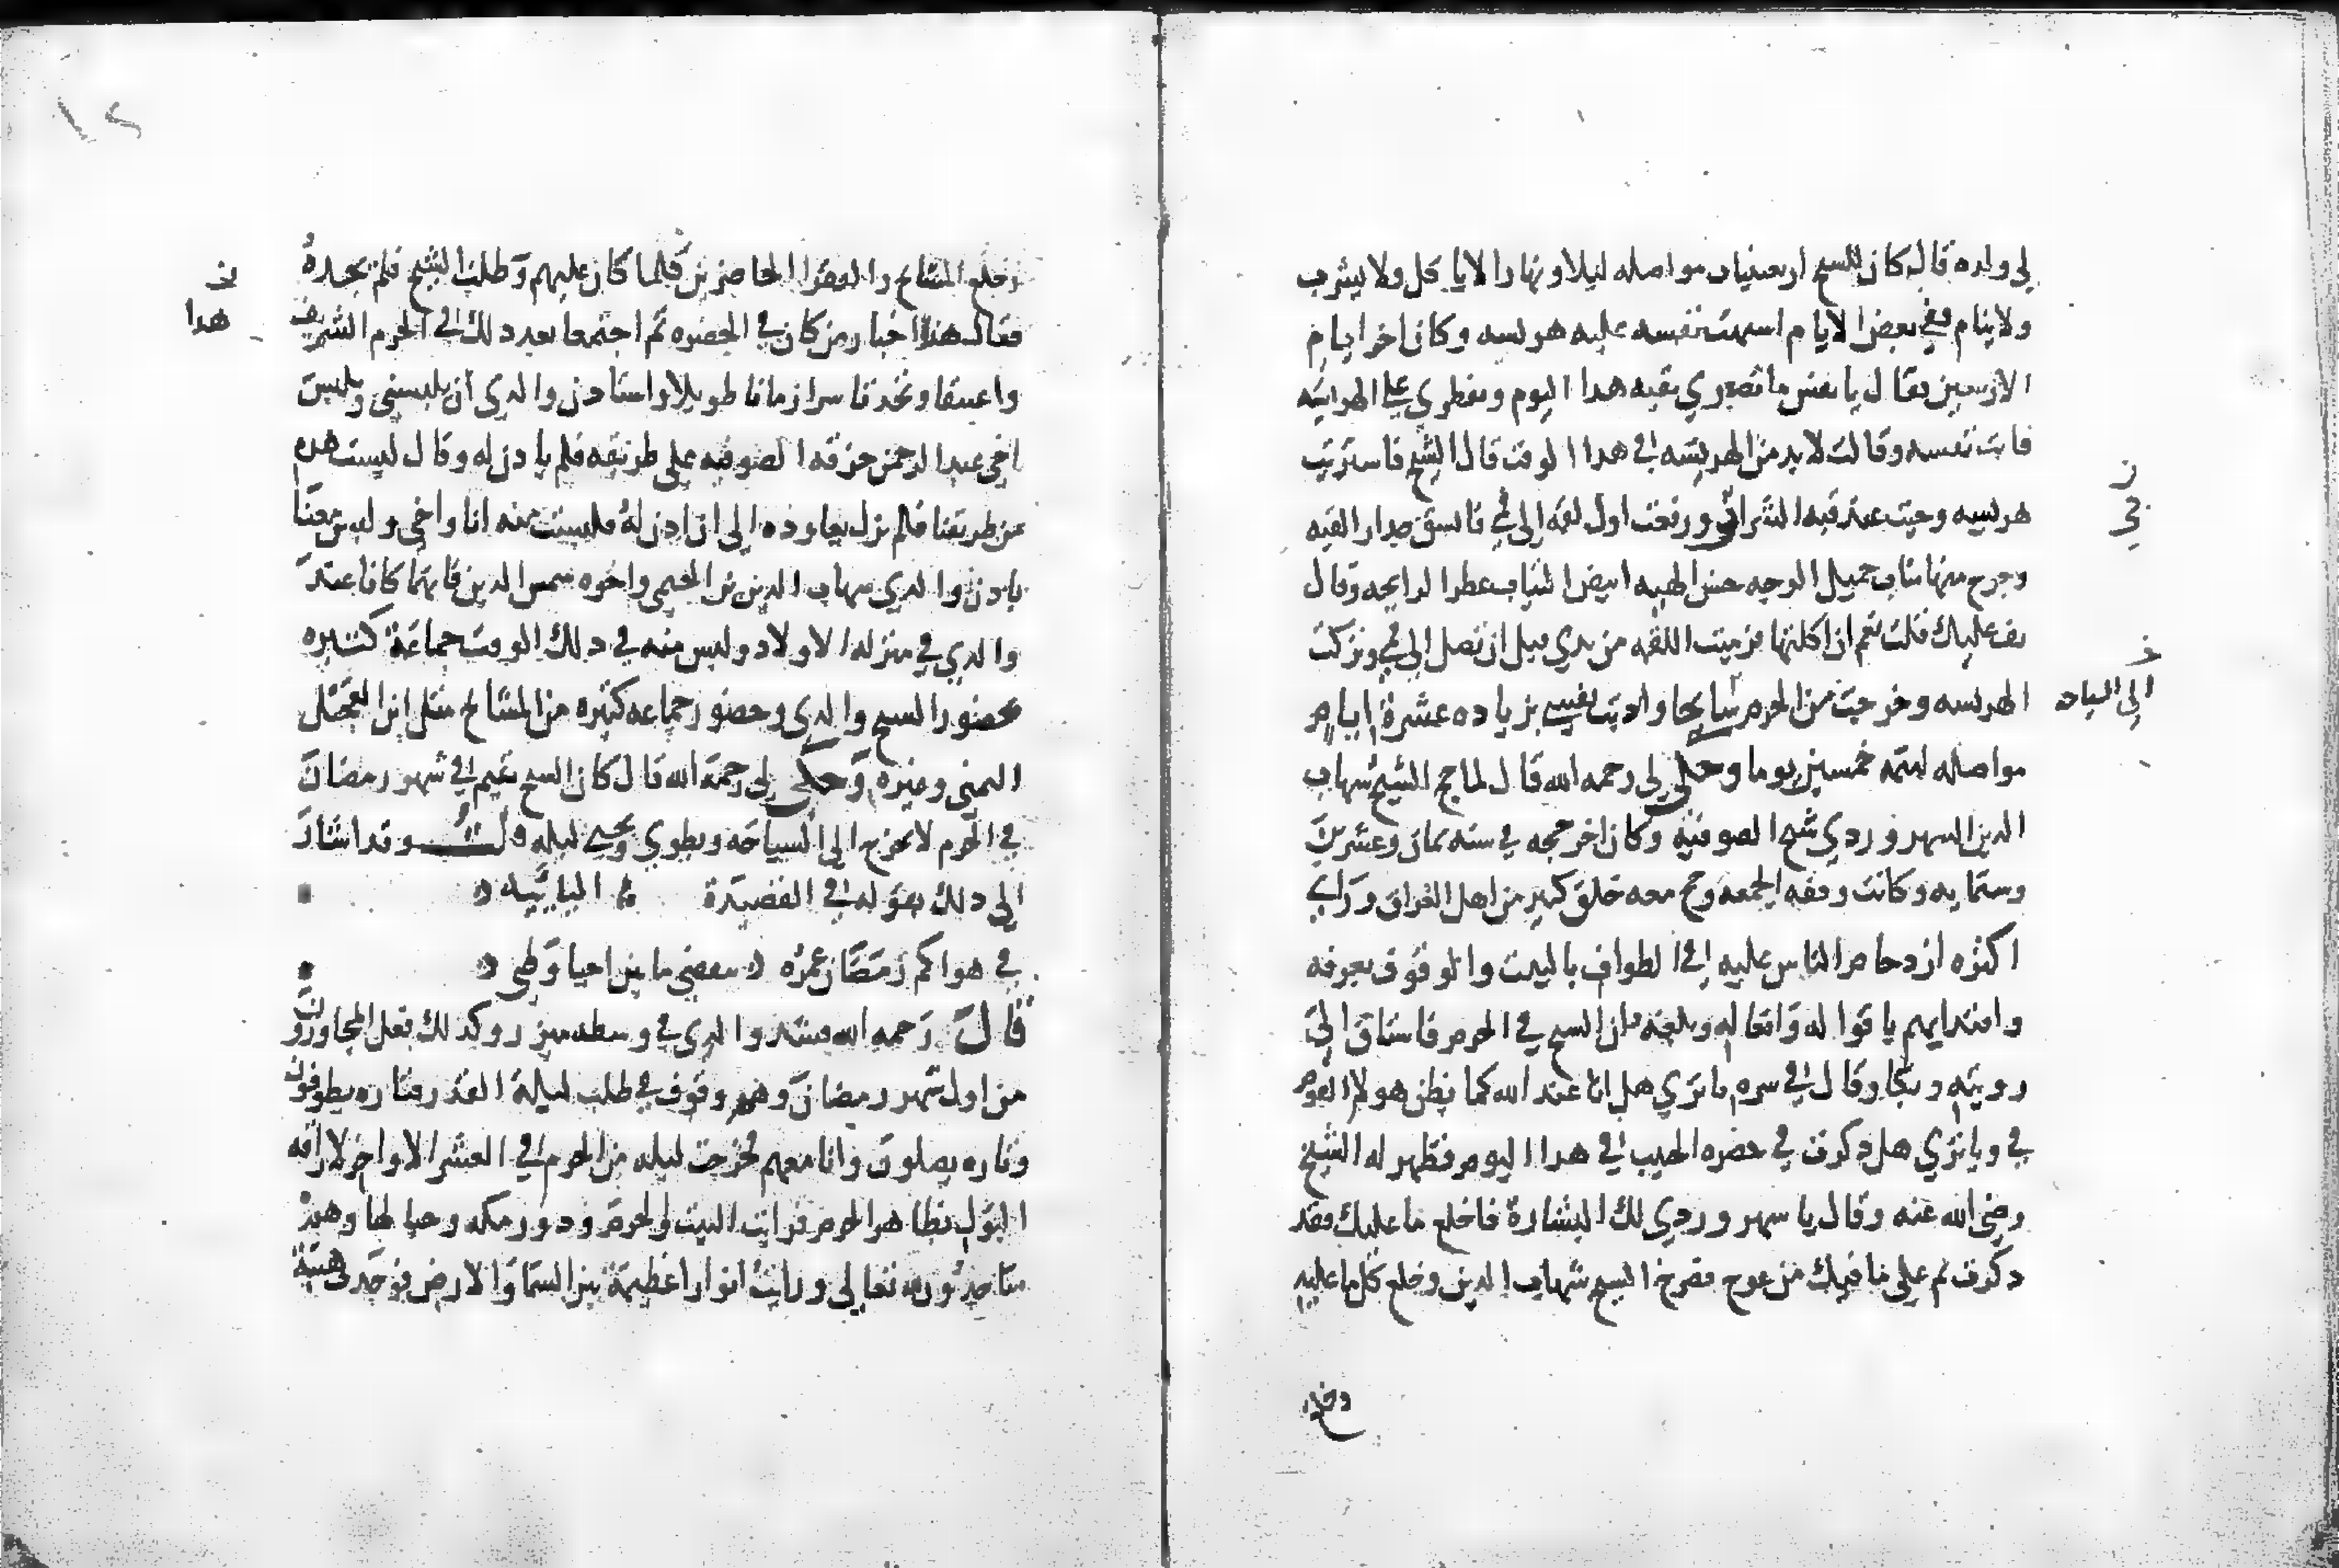 لي ولده قال كان للشيخ اربعينيات مواصله ليلا ونهارا لا ياكل ولا يشرب
ولا ينام ففي بعض الايام اشتهت نفسه عليه هريسه وكان اخر ايام
الاربعين فقال يا نفس ما تصبري بقيه هدا اليوم وتفطري علي الهريسه
فابت نفسه وقالت لا بد من الهريسه في هدا الوقت قال الشيخ فاشتريت
هريسه وجيت عند قبه الشرابي ورفعت اول لقمه الى في فانشق جدار القبه
وخرج منها شاب جميل الوجه حسن الهيه ابيض الثياب عطر الرايحه وقال
تف عليك فقلت نعم ان اكلتها فرميت اللقمه من يدي قبل ان تصل الى في وتركت
الهريسه وخرجت من الحرم سايحا وادبت نفسي بزياده عشرة ايام
مواصله لتمه خمسين يوما وحكى لي رحمه الله قال لما حج الشيخ شهاب
الدين السهروردي شيخ الصوفيه وكان اخر حجه في سنه ثمان وعشرين
وستمايه وكانت وقفه الجمعه وحج معه خلق كبير من اهل العراق وراى
اكثره ازدحام الناس عليه في الطواف بالبيت والوقوف بعرفه
واقتدايهم باقواله وافعاله وبلغه ان الشيخ في الحرم فاشتاق الى
رويته وبكا وقال في سره يا ترى هل انا عند الله كما يظن هولاء القوم
في ويا ترى هل دكرت في حضره الحبيب في هدا اليوم فظهر له الشيخ
رضي الله عنه وقال يا سهروردي لك البشارة فاخلع ما عليك فقد
دكرت ثم على ما فيك من عوج فصرخ الشيخ شهاب الدين وخلع كل ما عليه
وخلع
ن
في
خ
الى السياحه
وخلع المشايخ والفقرا الحاضرين كلما كان عليهم وطلب الشيخ فلم يجده
فقال هذا اخبار من كان في الحضره ثم اجتمعا بعد دلك في الحرم الشريف
واعتنقا وتحدثا سرا زمانا طويلا واستادن والدي ان يلبسني ويلبس
اخي عبد الرحمن خرقه الصوفيه على طريقه فلم يادن له وقال ليست هده
من طريقنا فلم يزل يعاوده الى ان ادن له فلبست منه انا واخي ولبس معنا
بادن والدي شهاب الدين بن الخيمي واخوه شمس الدين فانهما كانا عند
والدي في منزله الاولاد ولبس منه في دلك الوقت جماعة كثيره
بحضور الشيخ والدي وحضور جماعه كثيره من المشايخ مثل ابن العجيل
اليمني وغيره وحكى لي رحمة الله قال كان الشيخ يقيم في شهر رمضان
في الحرم لا يخرج الى السياحه ويطوي ويحيي ليله قلت وقد اشار
الى دلك بقوله في القصيدة اليائييه
في هواكم رمضان عمره ينقضي ما بين احيا وطي
قال رحمه الله فشد والدي في وسطه ميزر وكدلك فعل المجاورون
من اول شهر رمضان وهم وقوف في طلب ليلة القدر فتاره يطوفون
وتاره يصلون وانا معهم فخرجت ليله من الحرم في العشر الاواخر لاراقه
البول بظاهر الحرم فرايت البيت والحرم ودور مكه وجبالها وهم
ساجدون لله تعالى ورايت انوارا عظيمة بين السما والارض فوجدت هيبة
خ
هدا